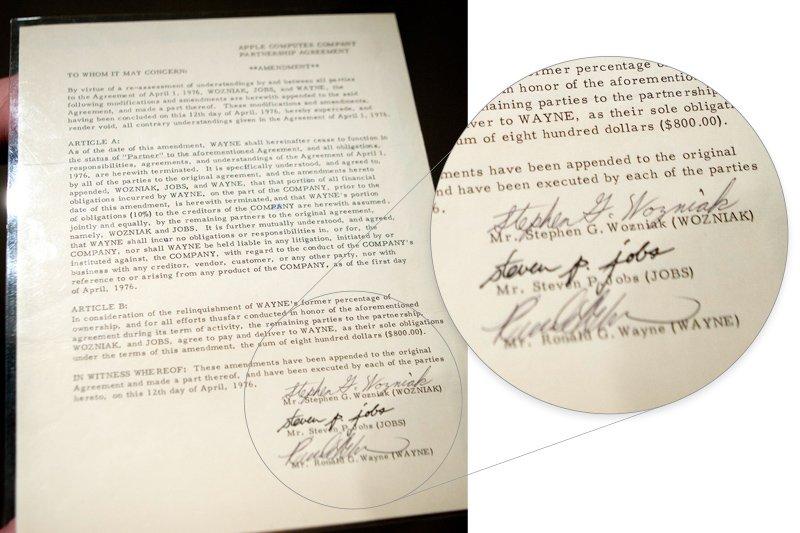 APPLE COMPUTER COMPANY
PARTNERSHIP AGREEMENT
TO WHOM IT MAY CONCERN:
**AMENDMENT**
By virtue of a re-assessment of understandings by and between all parties
to the Agreement of April 1, 1976, WOZNIAK, JOBS, and WAYNE, the
following modifications and amendments are herewith appended to the said
Agreement, and made a part thereof. These modifications and amendments,
having been concluded on this 12th day of April, 1976, hereby supercede, and
render void, all contrary understandings given in the Agreement of April 1, 1976.
ARTICLE A:
As of the date of this amendment, WAYNE shall hereinafter cease to function in
the status of "Partner" to the aforementioned Agreement, and all obligations,
responsibilities, agreements, and understandings of the Agreement of April 1,
1976, are herewith terminated. It is specifically understood, and agreed to,
by all of the parties to the original agreement, and the amendments hereto
appended, WOZNIAK, JOBS, and WAYNE, that that portion of all financial
obligations incurred by WAYNE, on the part of the COMPANY, prior to the
date of this amendment, is herewith terminated, and that WAYNE's portion
of obligations (10%) to the creditors of the COMPANY are herewith assumed,
jointly and equally, by the remaining partners to the original agreement,
namely, WOZNIAK and JOBS. It is further mutually understood, and agreed,
that WAYNE shall incur no obligations or responsibilities in, or for, the
COMPANY, nor shall WAYNE be held liable in any litigation, initiated by or
instituted against, the COMPANY, with regard to the conduct of the COMPANY's
business with any creditor, vendor, customer, or any other party, nor with
reference to or arising from any product of the COMPANY, as of the first day
of April, 1976.
ARTICLE B:
In consideration of the relinquishment of WAYNE's former percentage of
ownership, and for all efforts thusfar conducted in honor of the aforementioned
agreement during its term of activity, the remaining parties to the partnership,
WOZNIAK, and JOBS, agree to pay and deliver to WAYNE, as their sole obligations
under the terms of this amendment, the sum of eight hundred dollars ($800.00).
IN WITNESS WHEREOF: These amendments have been appended to the original
Agreement and made a part thereof, and have been executed by each of the parties
hereto, on this 12th day of April, 1976.
Stephen G. Wozniak
Mr. Stephen G. Wozniak (WOZNIAK)
steven p. jobs
Mr. Steven P. Jobs (JOBS)
Mr. Ronald G. Wayne (WAYNE)
rmer percentage
n honor of the aforementio
naining parties to the partnership
ver to WAYNE, as their sole obligati
um of eight hundred dollars ($800.00).
ments have been appended to the original
nd have been executed by each of the parties
6.
Stephen G. Wozniak
Mr. Stephen G. Wozniak (WOZNIAK)
steven p. jobs
Mr. Steven P. Jobs (JOBS)
Mr. Ronald G. Wayne (WAYNE)